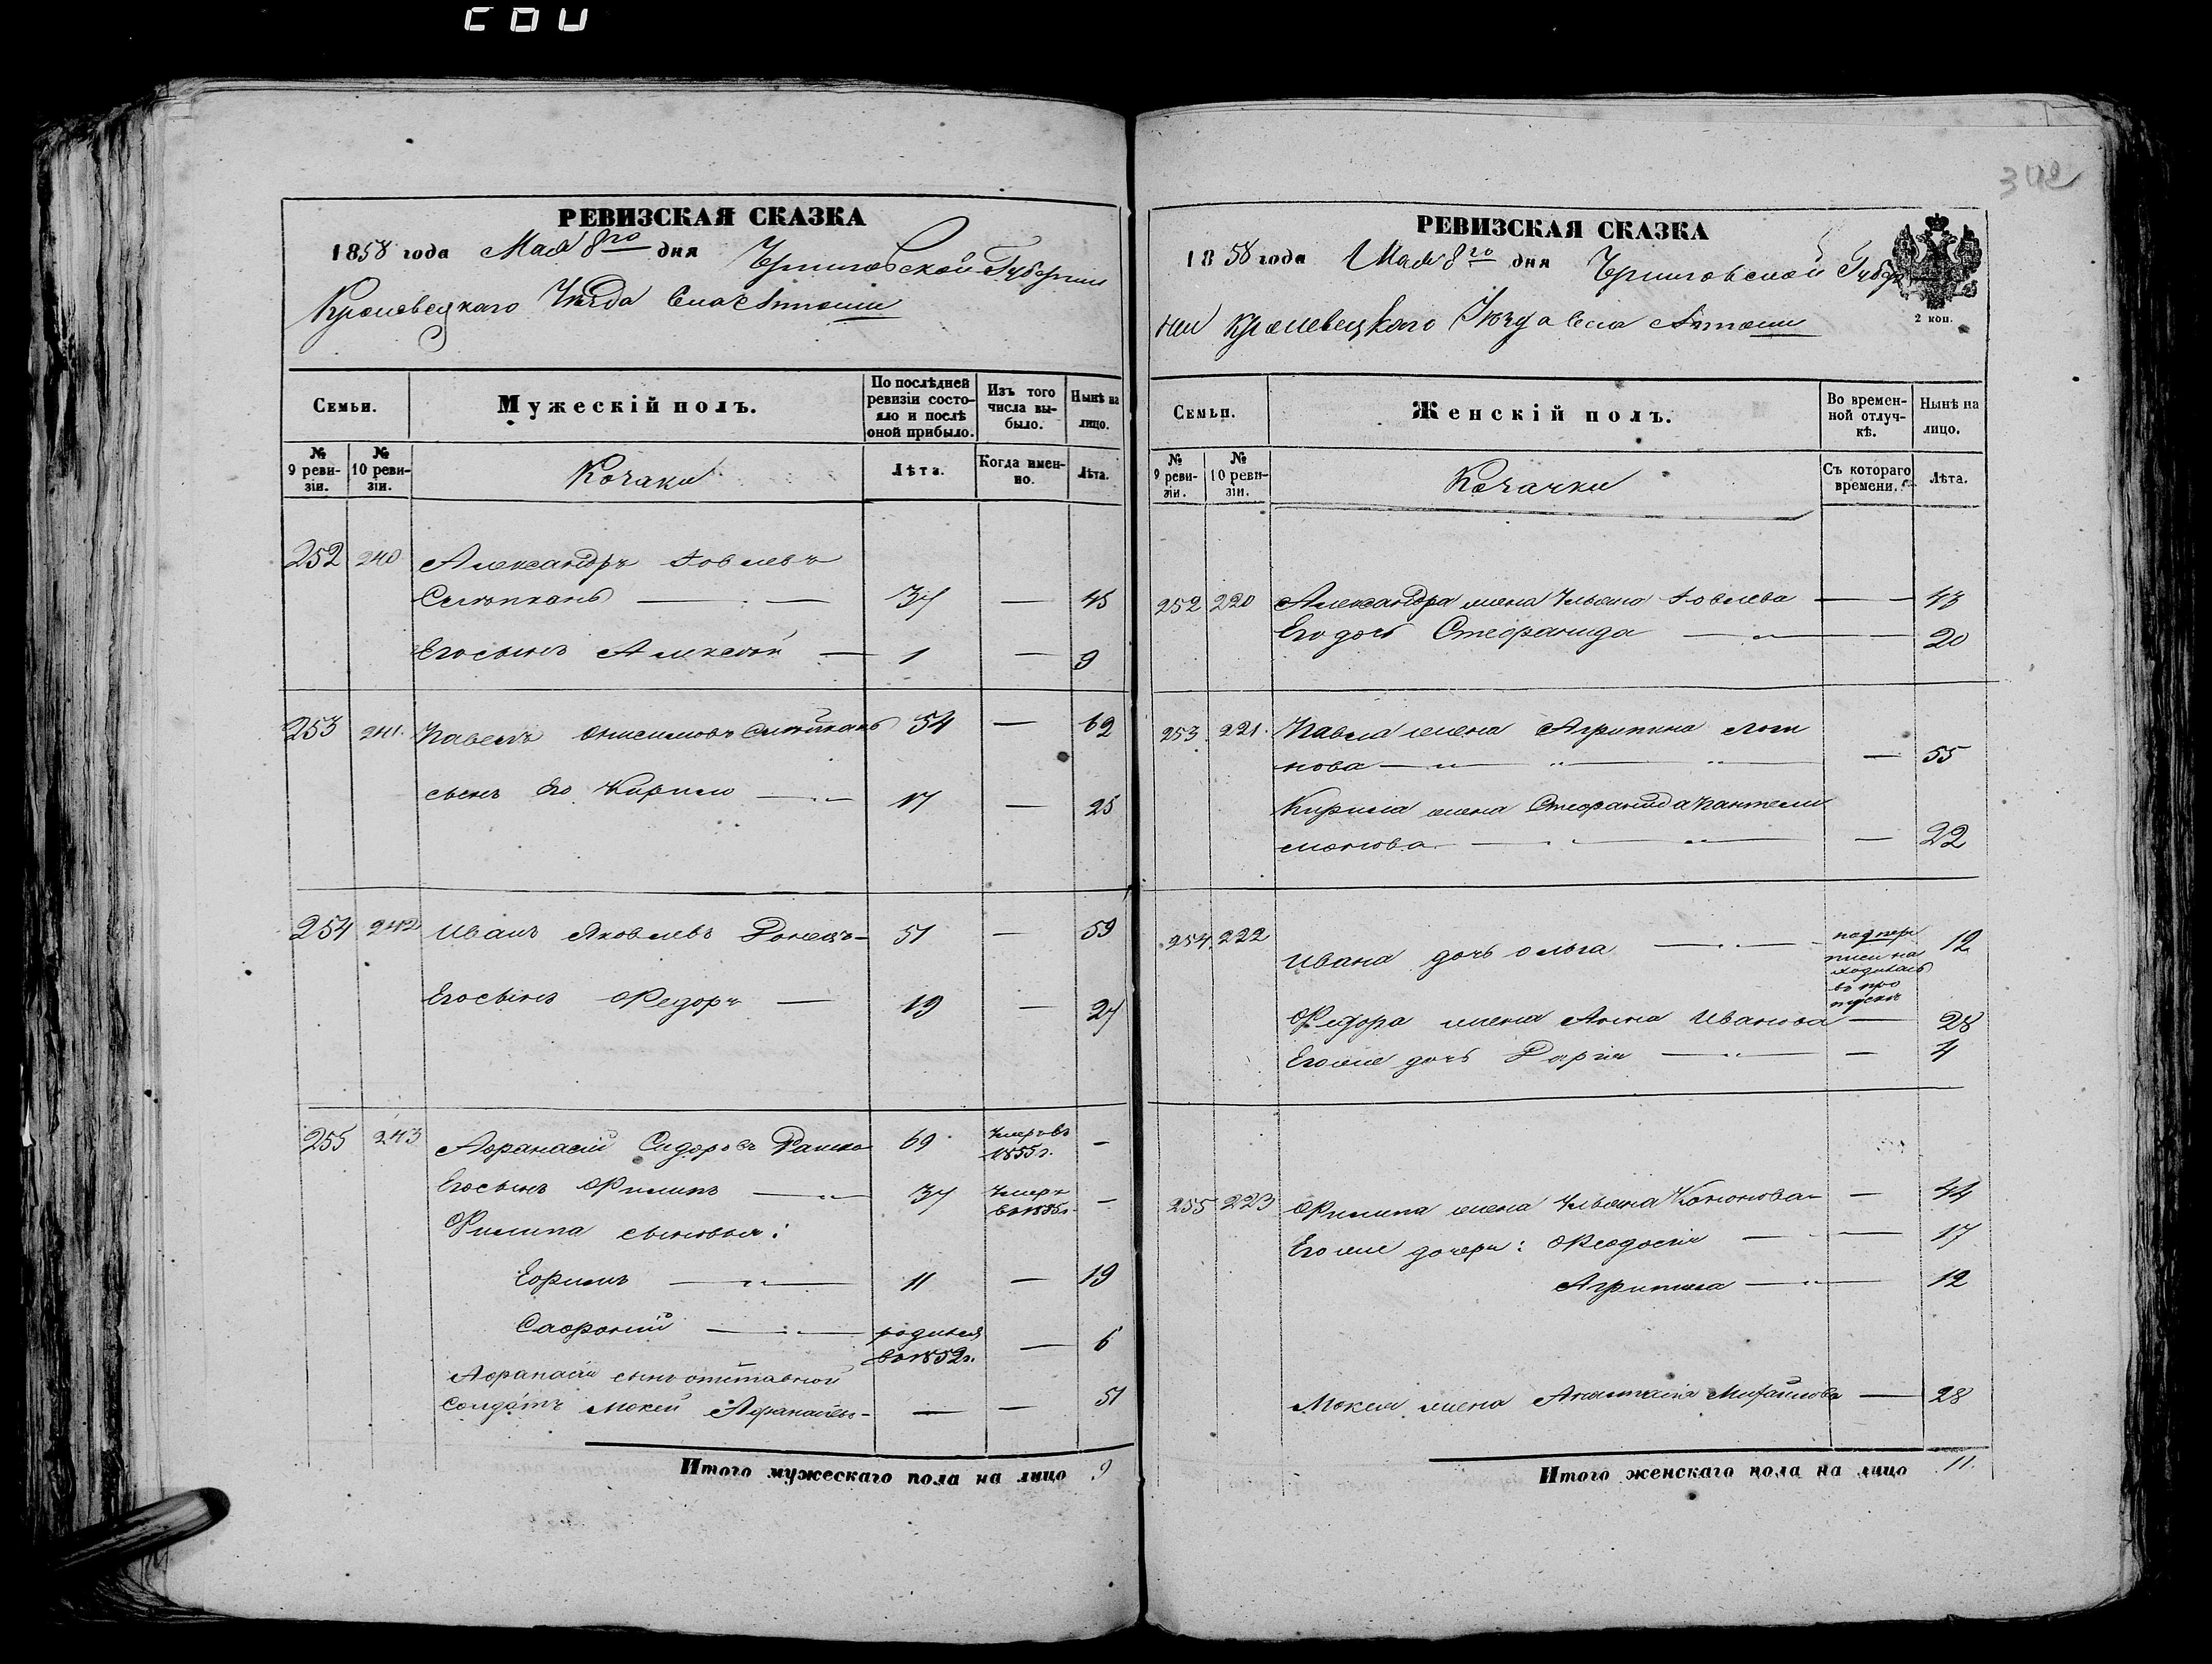 РЕВИЗСКАЯ СКАЗКА
1858 года Мая 8го дня Черниговской Губернии
Кролевецкаго Уѣзда Села
Семьи.
Мужескій полъ.
По послѣдней ревизіи состояло и послѣ оной прибыло.
Изъ того числа выбыло.
Нынѣ на лицо.
№ 9 ревизіи.
№ 10 ревизіи.
Козаки
Лѣта.
Когда именно.
Лѣта.
252 240 Александръ Іовлевъ
37 — 45
Его сынъ Алексѣй — 1 — 9
253 241 Павелъ Онисимовъ 54 — 62
сынъ Его Кирило — 17 — 25
254 242 Иванъ Яковлевъ Донецъ 51 — 59
Его сынъ Ѳедоръ — 19 — 27
255 243 Афанасій Сидоровъ 69 Умеръ въ 1855 г. —
Его сынъ Филипъ — 37 Умеръ въ 1855 г. —
Филипа сыновья:
Ефимъ — 11 — 19
Сафроній — родился въ 1852 г. — 6
Афанасія сынъ отставной
Солдатъ Мокей Афанасьевъ — — 51
Итого мужескаго пола на лицо 9
РЕВИЗСКАЯ СКАЗКА
1858 года Мая 8го дня Черниговской Губер
ніи Кролевецкаго Уѣзда Села
2 коп.
Семьи.
Женскій полъ.
Во временной отлучкѣ.
Нынѣ на лицо.
№ 9 ревизіи.
№ 10 ревизіи.
Козачки
Съ котораго времени.
Лѣта.
252 220 Александра жена Ульяна Іовлева — — 43
Его дочь Стефанида — — 20
253 221 Павла жена Агрипина Логи
нова — — 55
Кирила жена Стефанида Пантели
монова — — 22
254 222 Ивана дочь Ольга — 12
Ѳедора жена Анна Иванова — 28
Его же дочь Дарія — — 4
255 223 Филипа жена Ульяна Кононова — 44
Его же дочери: Ѳеодосія — 17
Агрипина — 12
Мокея жена Анастасія Михайлова — 28
Итого женскаго пола на лицо 11.